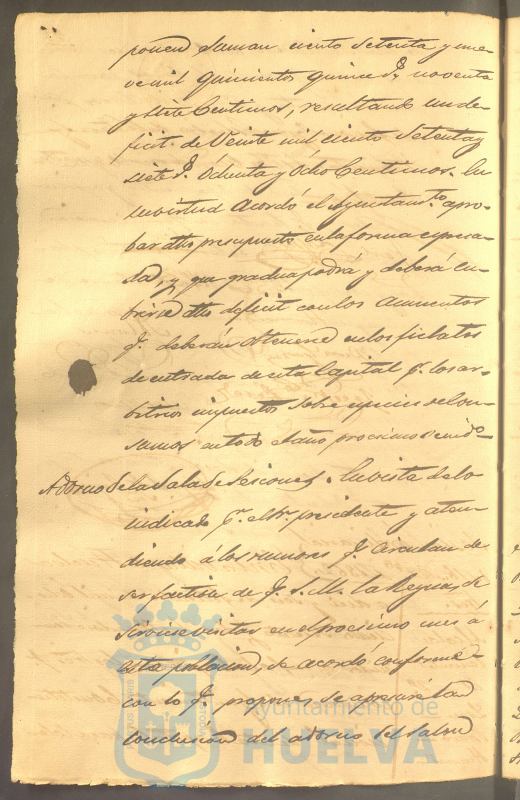 ponen suman ciento setenta y nue-
ve mil quinientos quince rs. noventa
y siete Centimos, resultando un de-
ficit de Veinte mil ciento setenta y
siete rs. Ochenta y Ocho Centimos. En
su virtud Acordó el Ayuntamto. apro-
bar dho presupuesto en la forma espresa-
da, y que graduа podrá y deberá cu-
brirse dho deficit con los aumentos
q. deberán obtenerse en los
de entrada de esta Capital p. los ar-
bitrios impuestos sobre especies de Con-
sumos en todo el año procsimo venido.
Adorno de la Sala de Sesiones. En vista de lo
indicado p. el Sr. presidente y aten-
diendo á los rumores q. circulan de
ser factible de q. S. M. la Reyna, se
sirviese visitar en el procsimo mes á
esta poblacion, se acordó conforme
con lo q. propone se apresure la
conclusion del adorno del Salon
Ayuntamiento de
HUELVA